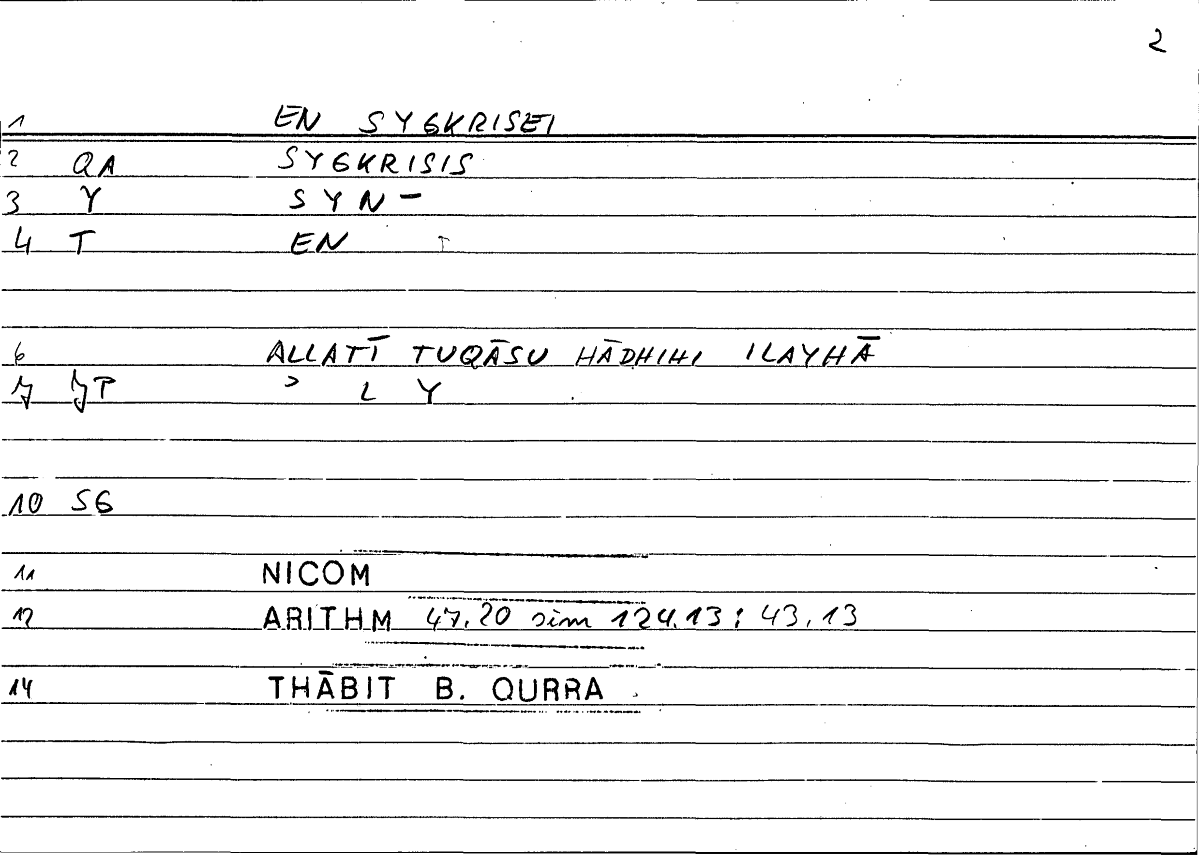 2
1 EN SYGKRISEI
2 QA SYGKRISIS
3 Y SYN-
4 T EN
6 ALLATĪ TUQĀSU HĀDHIHI ILAYHĀ
7 JP ʾ L Y
10 SG
11 NICOM
12 ARITHM 47,20 sim 124,13; 43,13
14 THĀBIT B. QURRA